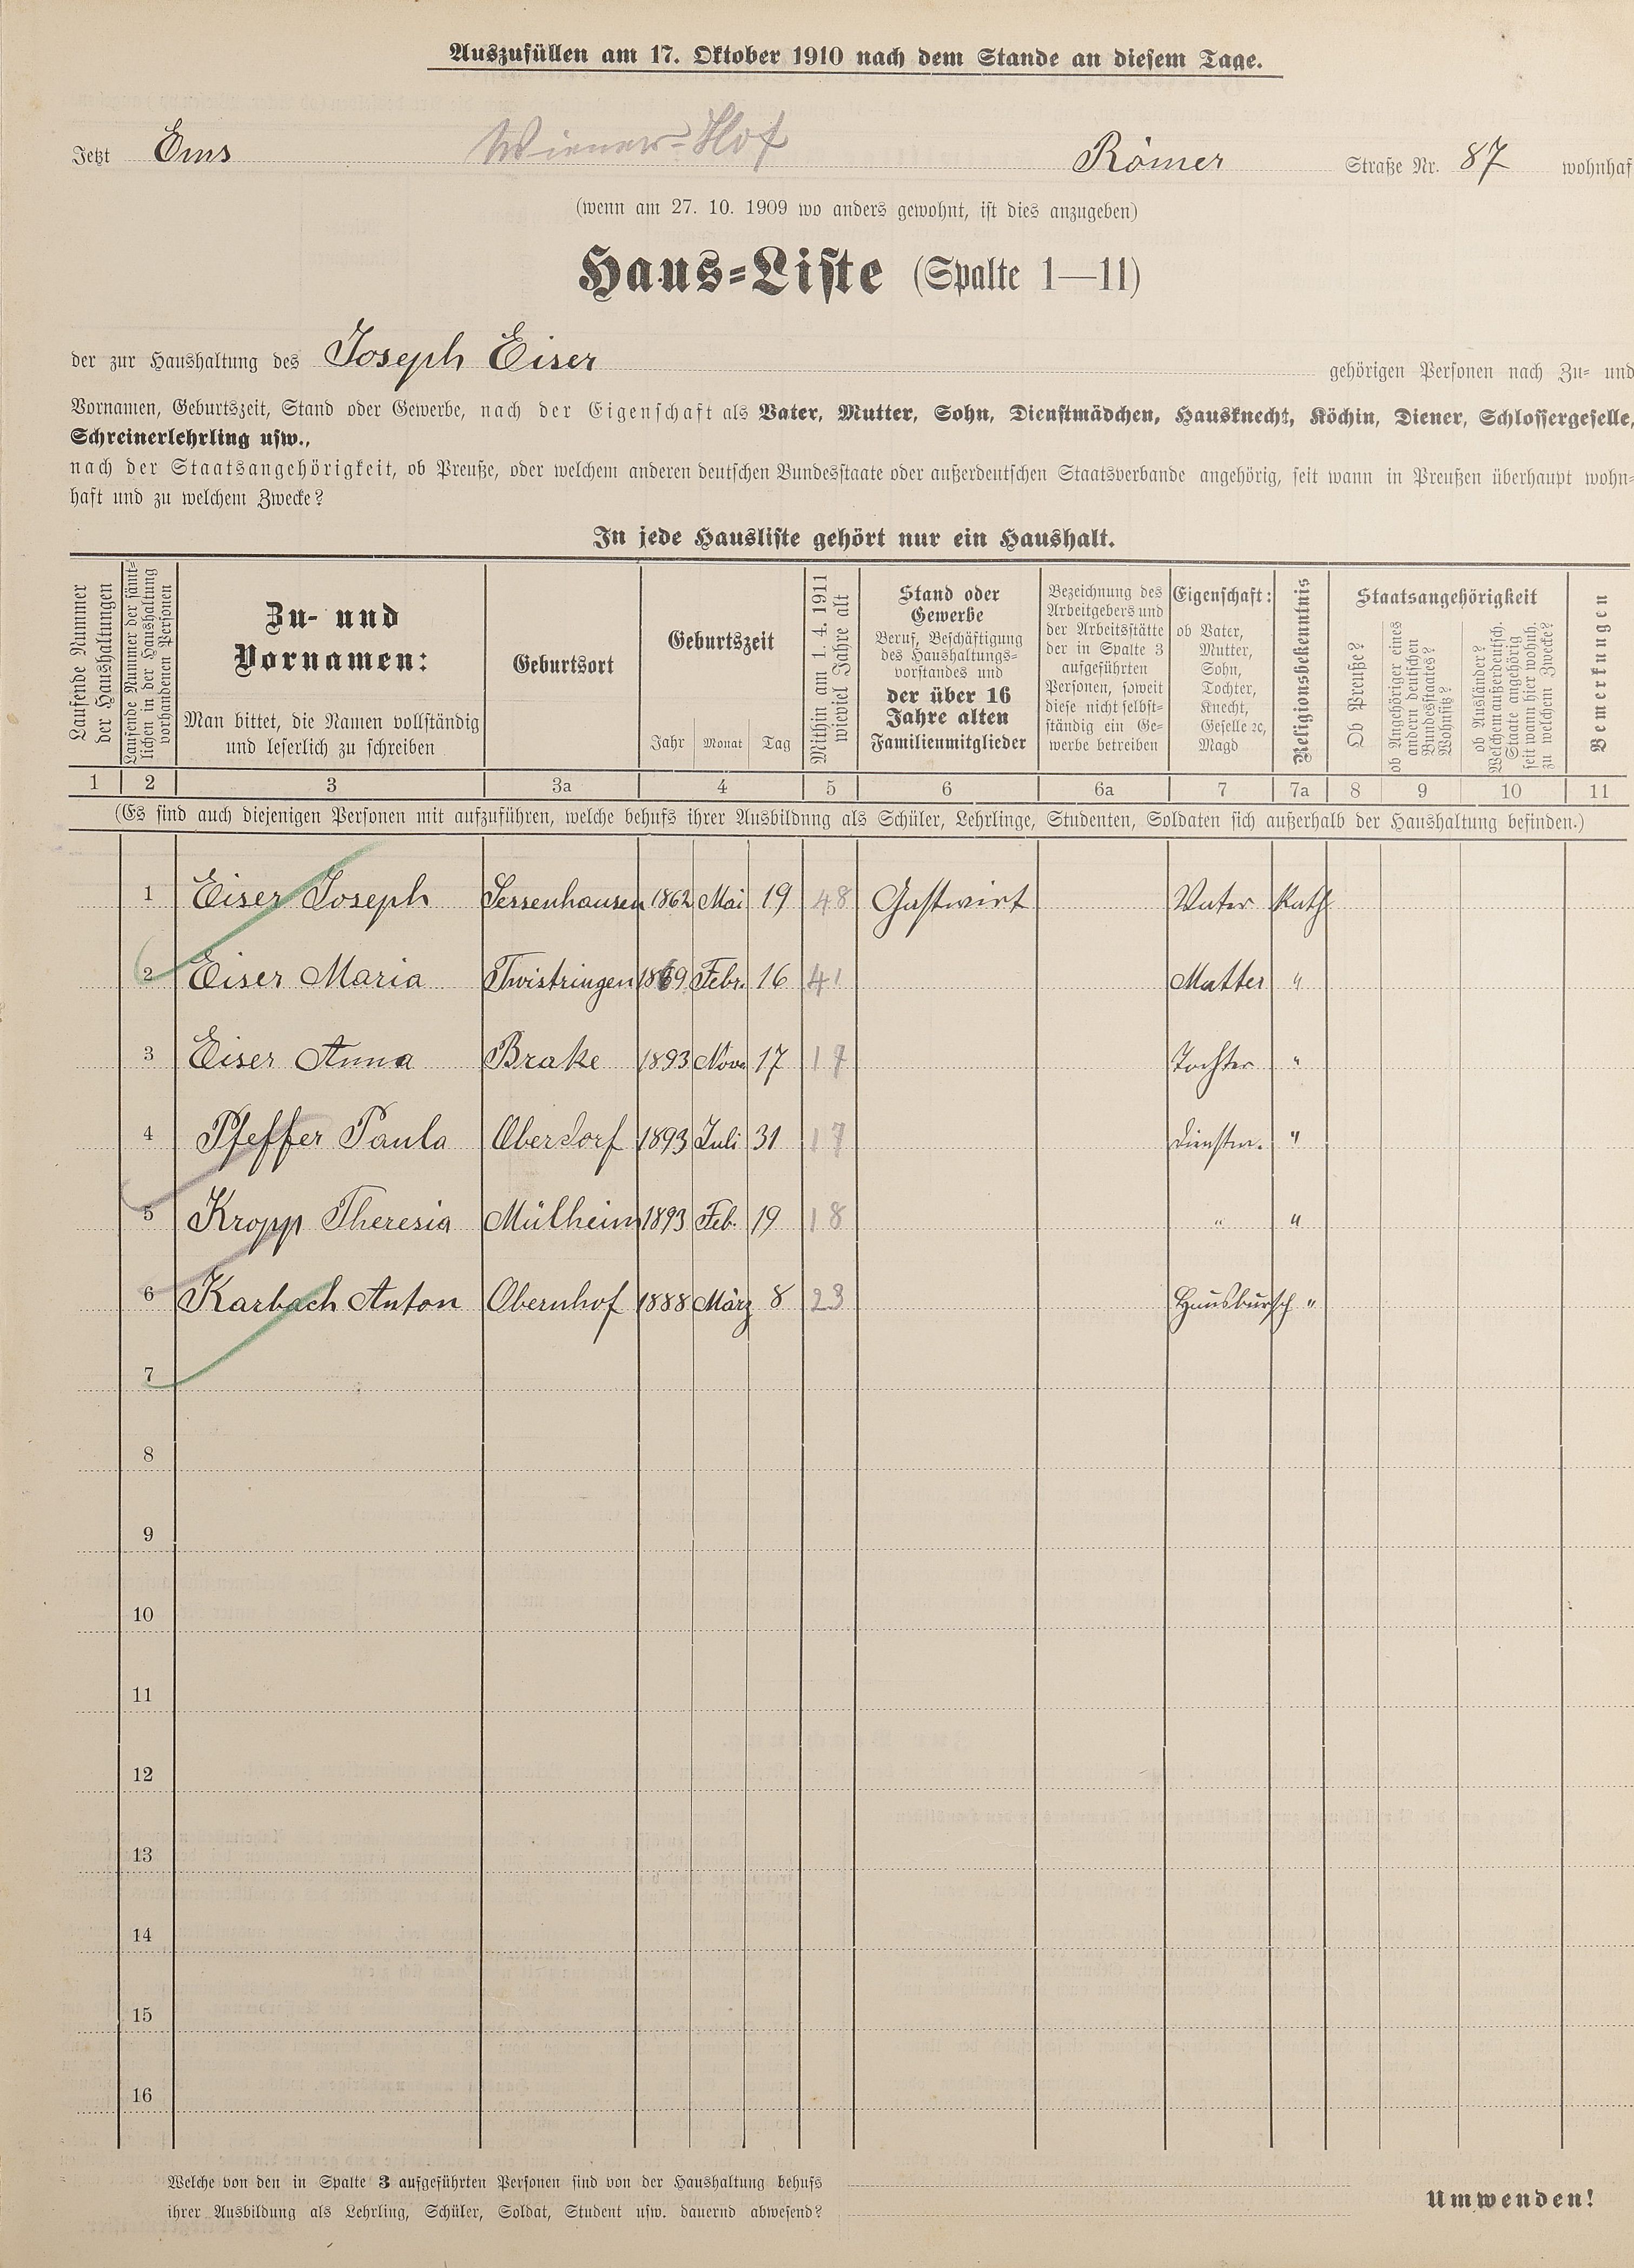 Auszufüllen am 17. Oktober 1910 nach dem Stande an diesem Tage.
Jetzt Ems Wiener-Hof Römer Straße Nr. 87 wohnhaf
(wenn am 27. 10. 1909 wo anders gewohnt, ist dies anzugeben)
Haus-Liste (Spalte 1—11)
der zur Haushaltung des Joseph Eiser gehörigen Personen nach Zu- und
Vornamen, Geburtszeit, Stand oder Gewerbe, nach der Eigenschaft als Vater, Mutter, Sohn, Dienstmädchen, Hausknecht, Köchin, Diener, Schlossergeselle,
Schreinerlehrling usw.,
nach der Staatsangehörigkeit, ob Preuße, oder welchem anderen deutschen Bundesstaate oder außerdeutschen Staatsverbande angehörig, seit wann in Preußen überhaupt wohn-
haft und zu welchem Zwecke?
In jede Hausliste gehört nur ein Haushalt.
Laufende Nummer
der Haushaltungen
Laufende Nummer der sämt-
lichen in der Haushaltung
vorhandenen Personen
Zu- und
Vornamen:
Man bittet, die Namen vollständig
und leserlich zu schreiben
Geburtsort
Geburtszeit
Jahr Monat Tag
Mithin am 1. 4. 1911
wieviel Jahre alt
Stand oder
Gewerbe
Beruf, Beschäftigung
des Haushaltungs-
vorstandes und
der über 16
Jahre alten
Familienmitglieder
Bezeichnung des
Arbeitgebers und
der Arbeitsstätte
der in Spalte 3
aufgeführten
Personen, soweit
diese nicht selbst-
ständig ein Ge-
werbe betreiben
Eigenschaft:
ob Vater,
Mutter,
Sohn,
Tochter,
Knecht,
Geselle ꝛc,
Magd
Religionsbekenntnis
Staatsangehörigkeit
Ob Preuße?
ob Angehöriger eines
andern deutschen
Bundesstaates?
Wohnsitz?
ob Ausländer?
Welchem außerdeutsch.
Staate angehörig
seit wann hier wohnh.
zu welchem Zwecke?
Bemerkungen
1 2 3 3a 4 5 6 6a 7 7a 8 9 10 11
(Es sind auch diejenigen Personen mit aufzuführen, welche behufs ihrer Ausbildung als Schüler, Lehrlinge, Studenten, Soldaten sich außerhalb der Haushaltung befinden.)
1 Eiser Joseph Sessenhausen 1862 Mai 19 48 Gastwirt Vater Kath
2 Eiser Maria Twistringen 1869 Febr. 16 41 Mutter "
3 Eiser Anna Brake 1893 Nov. 17 17 Tochter "
4 Pfeffer Paula Oberdorf 1893 Juli 31 17 Dienstm. "
5 Kropp Theresia Mülheim 1893 Feb. 19 18 " "
6 Karbach Anton Obernhof 1888 März 8 23 Hausbursch "
7
8
9
10
11
12
13
14
15
16
Welche von den in Spalte 3 aufgeführten Personen sind von der Haushaltung behufs
ihrer Ausbildung als Lehrling, Schüler, Soldat, Student usw. dauernd abwesend?
Umwenden!